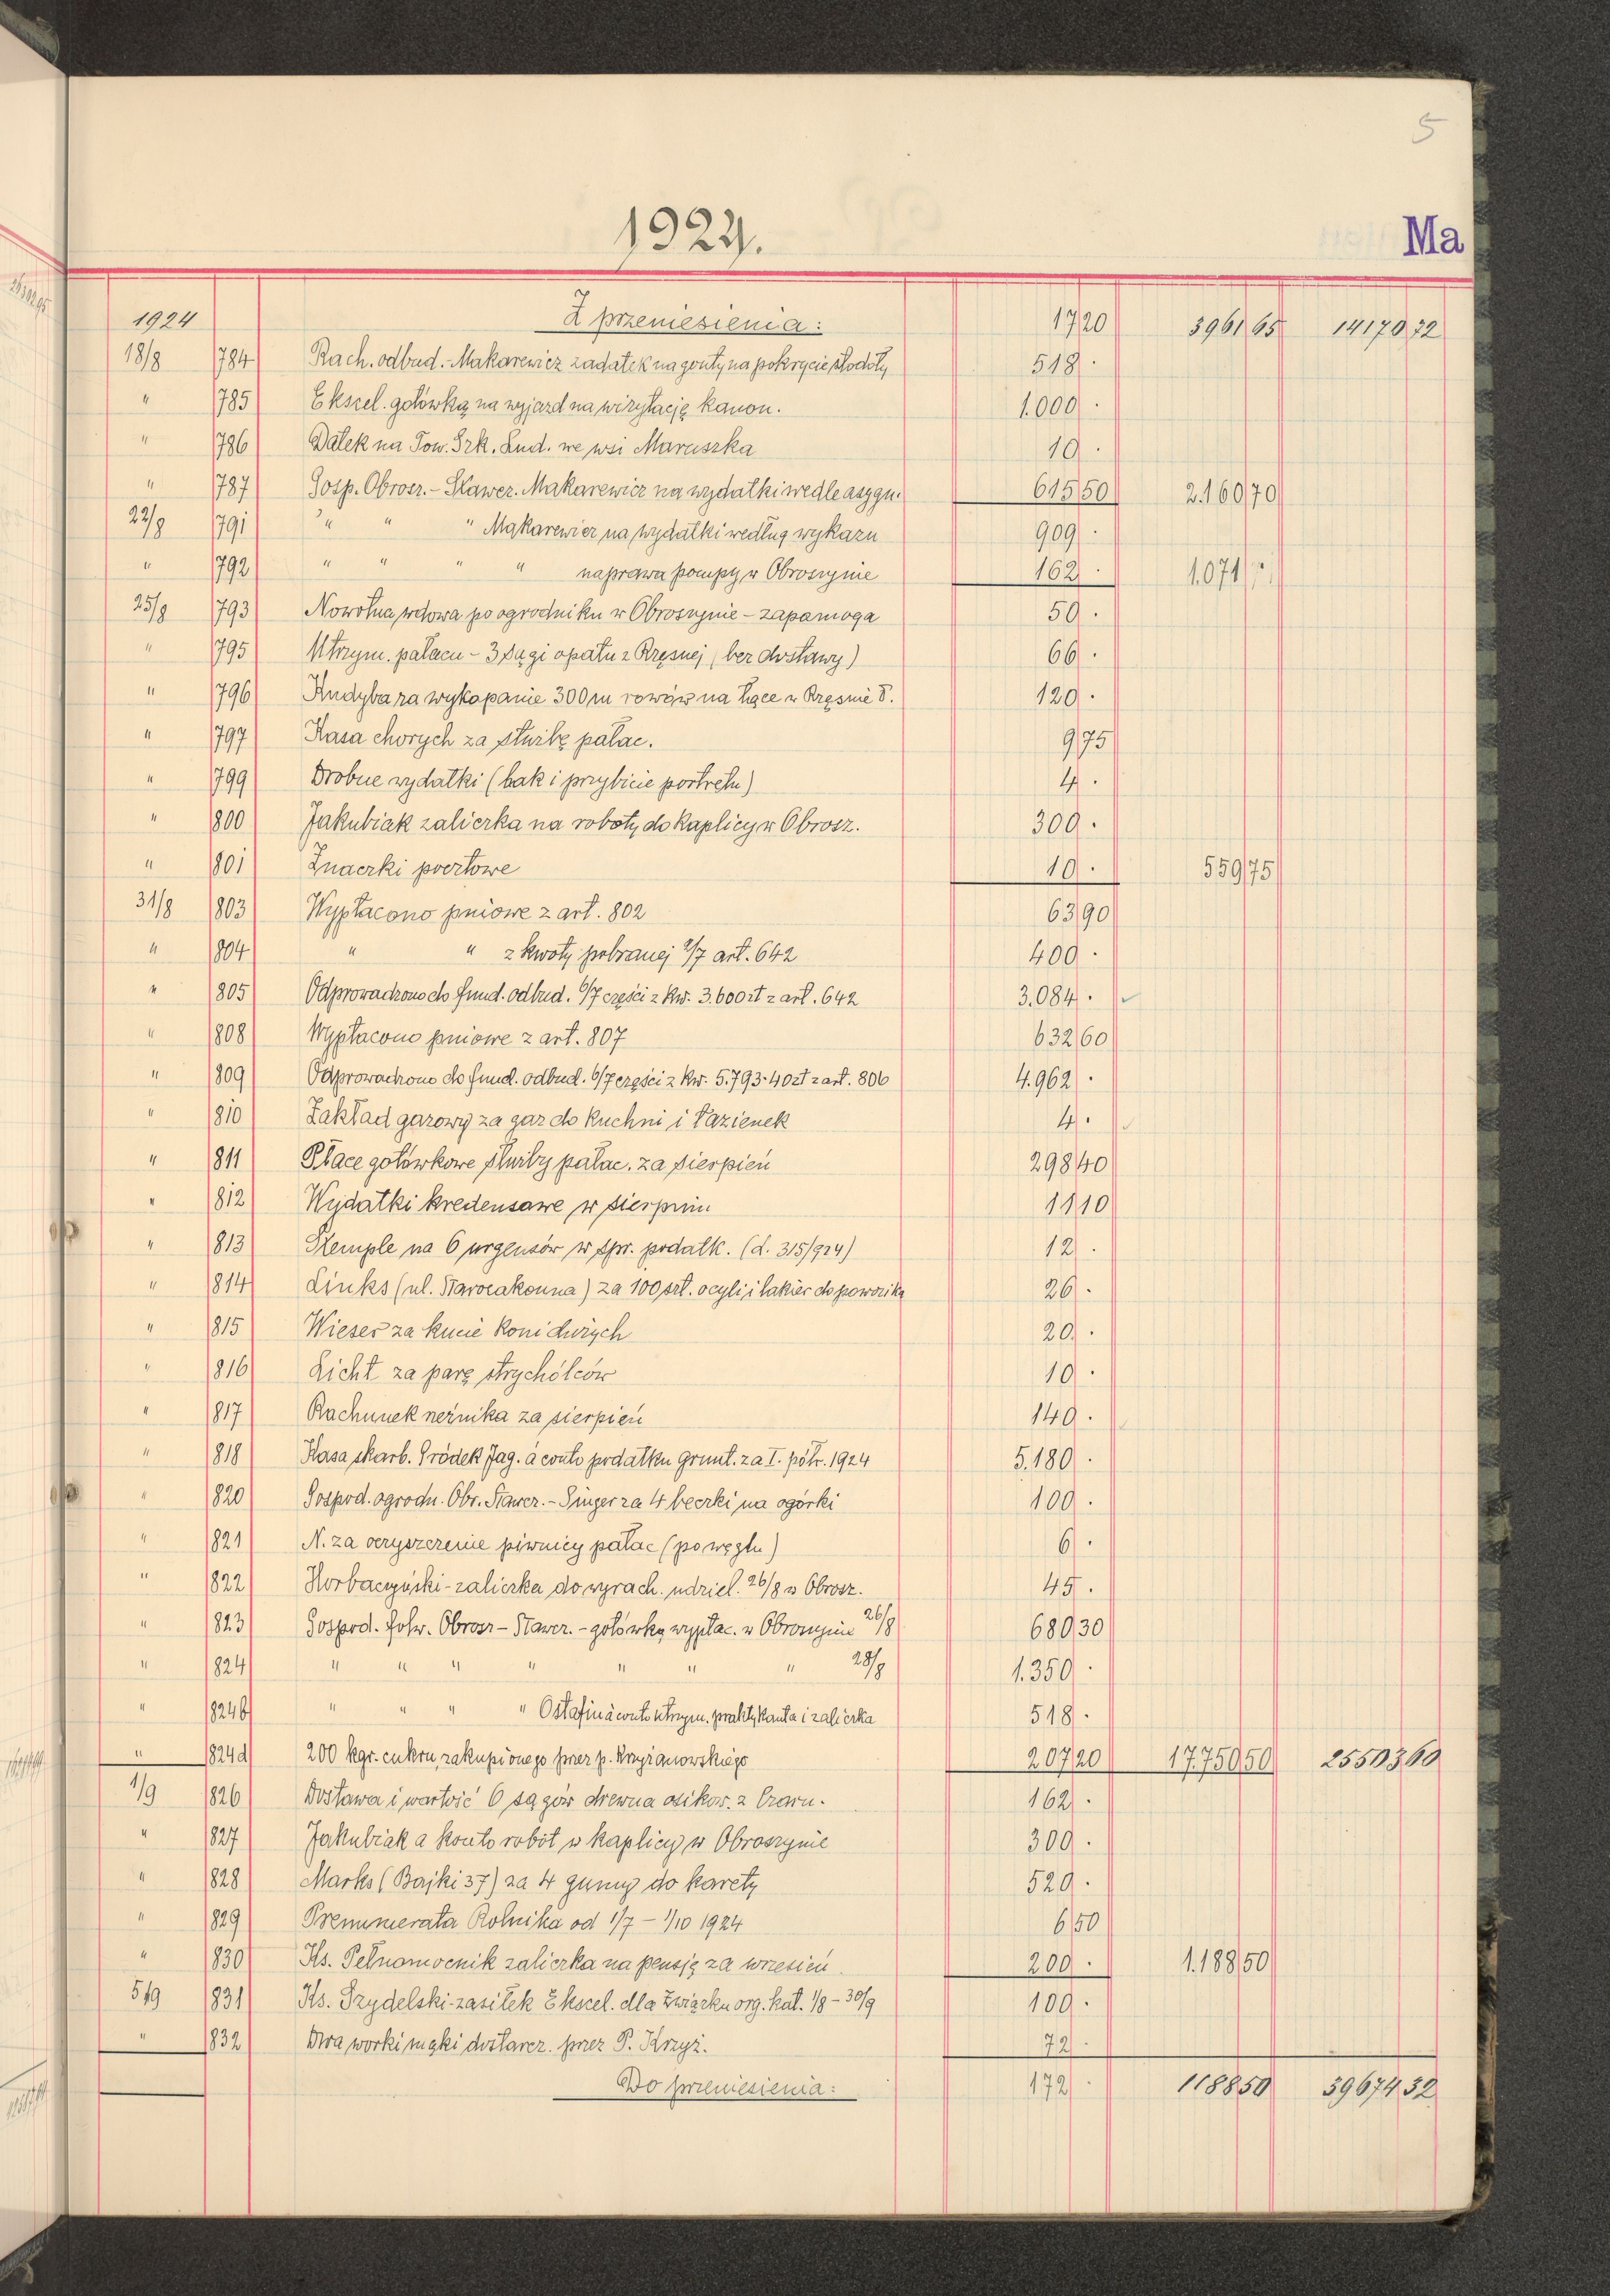 5
1924.
Ma
1924 Z przeniesienia: 17 20 3961 65 14170 72
18/8 784 Rach. odbud. - Makarewicz zadatek na gonty na pokrycie stodoły 518 .
" 785 Ekscel. gotówką na wyjazd na wizytację kanon. 1.000 .
" 786 Datek na Tow. Szk. Lud. we wsi Maruszka 10 .
" 787 Gosp. Obrosz. - Skawcz. Makarewicz na wydatki wedle asygn. 615 50 2.160 70
22/8 791 " " " Makarewicz na wydatki według wykazu 909 .
" 792 " " " " naprawa pompy w Obroszynie 162 . 1.071
25/8 793 Nowotna, wdowa po ogrodniku w Obroszynie - zapomoga 50 .
" 795 Utrzym. pałacu - 3 sągi opału z Rzęsnej (bez dostawy) 66 .
" 796 Kudyba za wykopanie 300 m rowów na łące w Rzęśnie P. 120 .
" 797 Kasa chorych za służbę pałac. 9 75
" 799 Drobne wydatki (hak i przybicie portretu) 4 .
" 800 Jakubiak zaliczka na roboty do kaplicy w Obrosz. 300 .
" 801 Znaczki pocztowe 10 . 559 75
31/8 803 Wypłacono pniowe z art. 802 63 90
" 804 " " z kwoty pobranej 2/7 art. 642 400 .
" 805 Odprowadzono do fund. odbud. 6/7 części z kw. 3.600 zł z art. 642 3.084 .
" 808 Wypłacono pniowe z art. 807 632 60
" 809 Odprowadzono do fund. odbud. 6/7 części z kw. 5.793·40 zł z art. 806 4.962 .
" 810 Zakład gazowy za gaz do kuchni i łazienek 4 .
" 811 Płace gotówkowe służby pałac. za sierpień 298 40
" 812 Wydatki kredensowe w sierpniu 11 10
" 813 Stemple na 6 urgensów w spr. podatk. (L. 315/924) 12 .
" 814 Links (ul. Starozakonna) za 100 szt. ocyli i lakier do powozika 26 .
" 815 Wieser za kucie koni dwżych 20 .
" 816 Licht za parę strychólców 10 .
" 817 Rachunek rzeźnika za sierpień 140 .
" 818 Kasa skarb. Gródek Jag. à conto podatku grunt. za I. półr. 1924 5.180 .
" 820 Gospod. ogrodn. Obr. Stawcz. - Singer za 4 beczki na ogórki 100 .
" 821 N. za oczyszczenie piwnicy pałac (po węglu) 6 .
" 822 Horbaczyński - zaliczka do wyrach. udziel. 26/8 w Obrosz. 45 .
" 823 Gospod. folw. Obrosz - Stawcz. - gotówką wypłac. w Obroszynie 26/8 680 30
" 824 " " " " " " " 28/8 1.350 .
" 824b " " " " Ostafin à conto utrzym. praktykanta i zaliczka 518 .
" 824d 200 kgr. cukru, zakupionego przez p. Krzyżanowskiego 207 20 17.750 50 25503 60
1/9 826 Dostawa i wartość 6 sągów drewna osikow. z Czarn. 162 .
" 827 Jakubiak a konto robót w kaplicy w Obroszynie 300 .
" 828 Marks (Bajki 37) za 4 gumy do karety 520 .
" 829 Prenumerata Rolnika od 1/7 - 1/10 1924 6 50
" 830 Ks. Pełnomocnik zaliczka na pensję za wrzesień 200 . 1.188 50
5/9 831 Ks. Szydelski - zasiłek Ekscel. dla Związku org. kat. 1/8 - 30/9 100 .
" 832 Dwa worki mąki dostarcz. przez P. Krzyż. 72 .
Do przeniesienia: 172 . 1188 50 39674 32